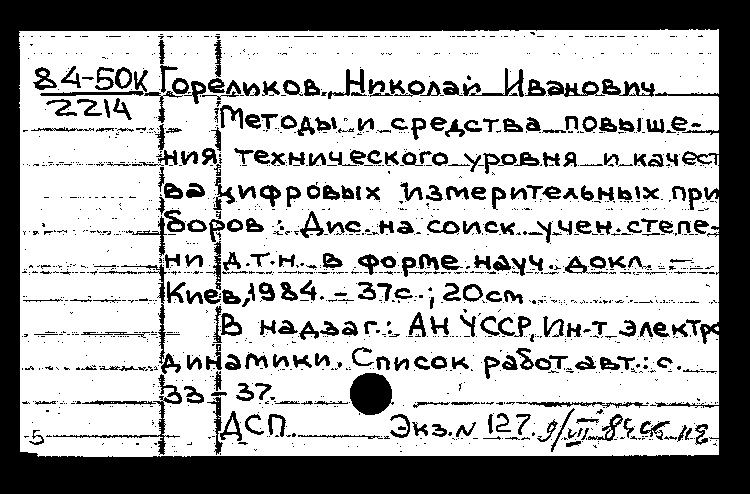 84-50К Гореликов, Николай Иванович
2214
Методы и средства повыше-
ния технического уровня и качест
ва цифровых измерительных при
боров : Дис. на соиск. учен. степе-
ни д.т.н. в форме науч. докл. –
Киев, 1984. – 37с. ; 20см.
В надзаг.: АН УССР, Ин-т электро
динамики. Список работ авт.: с.
33 – 37.
ДСП. Экз. № 127. 9/VII
5